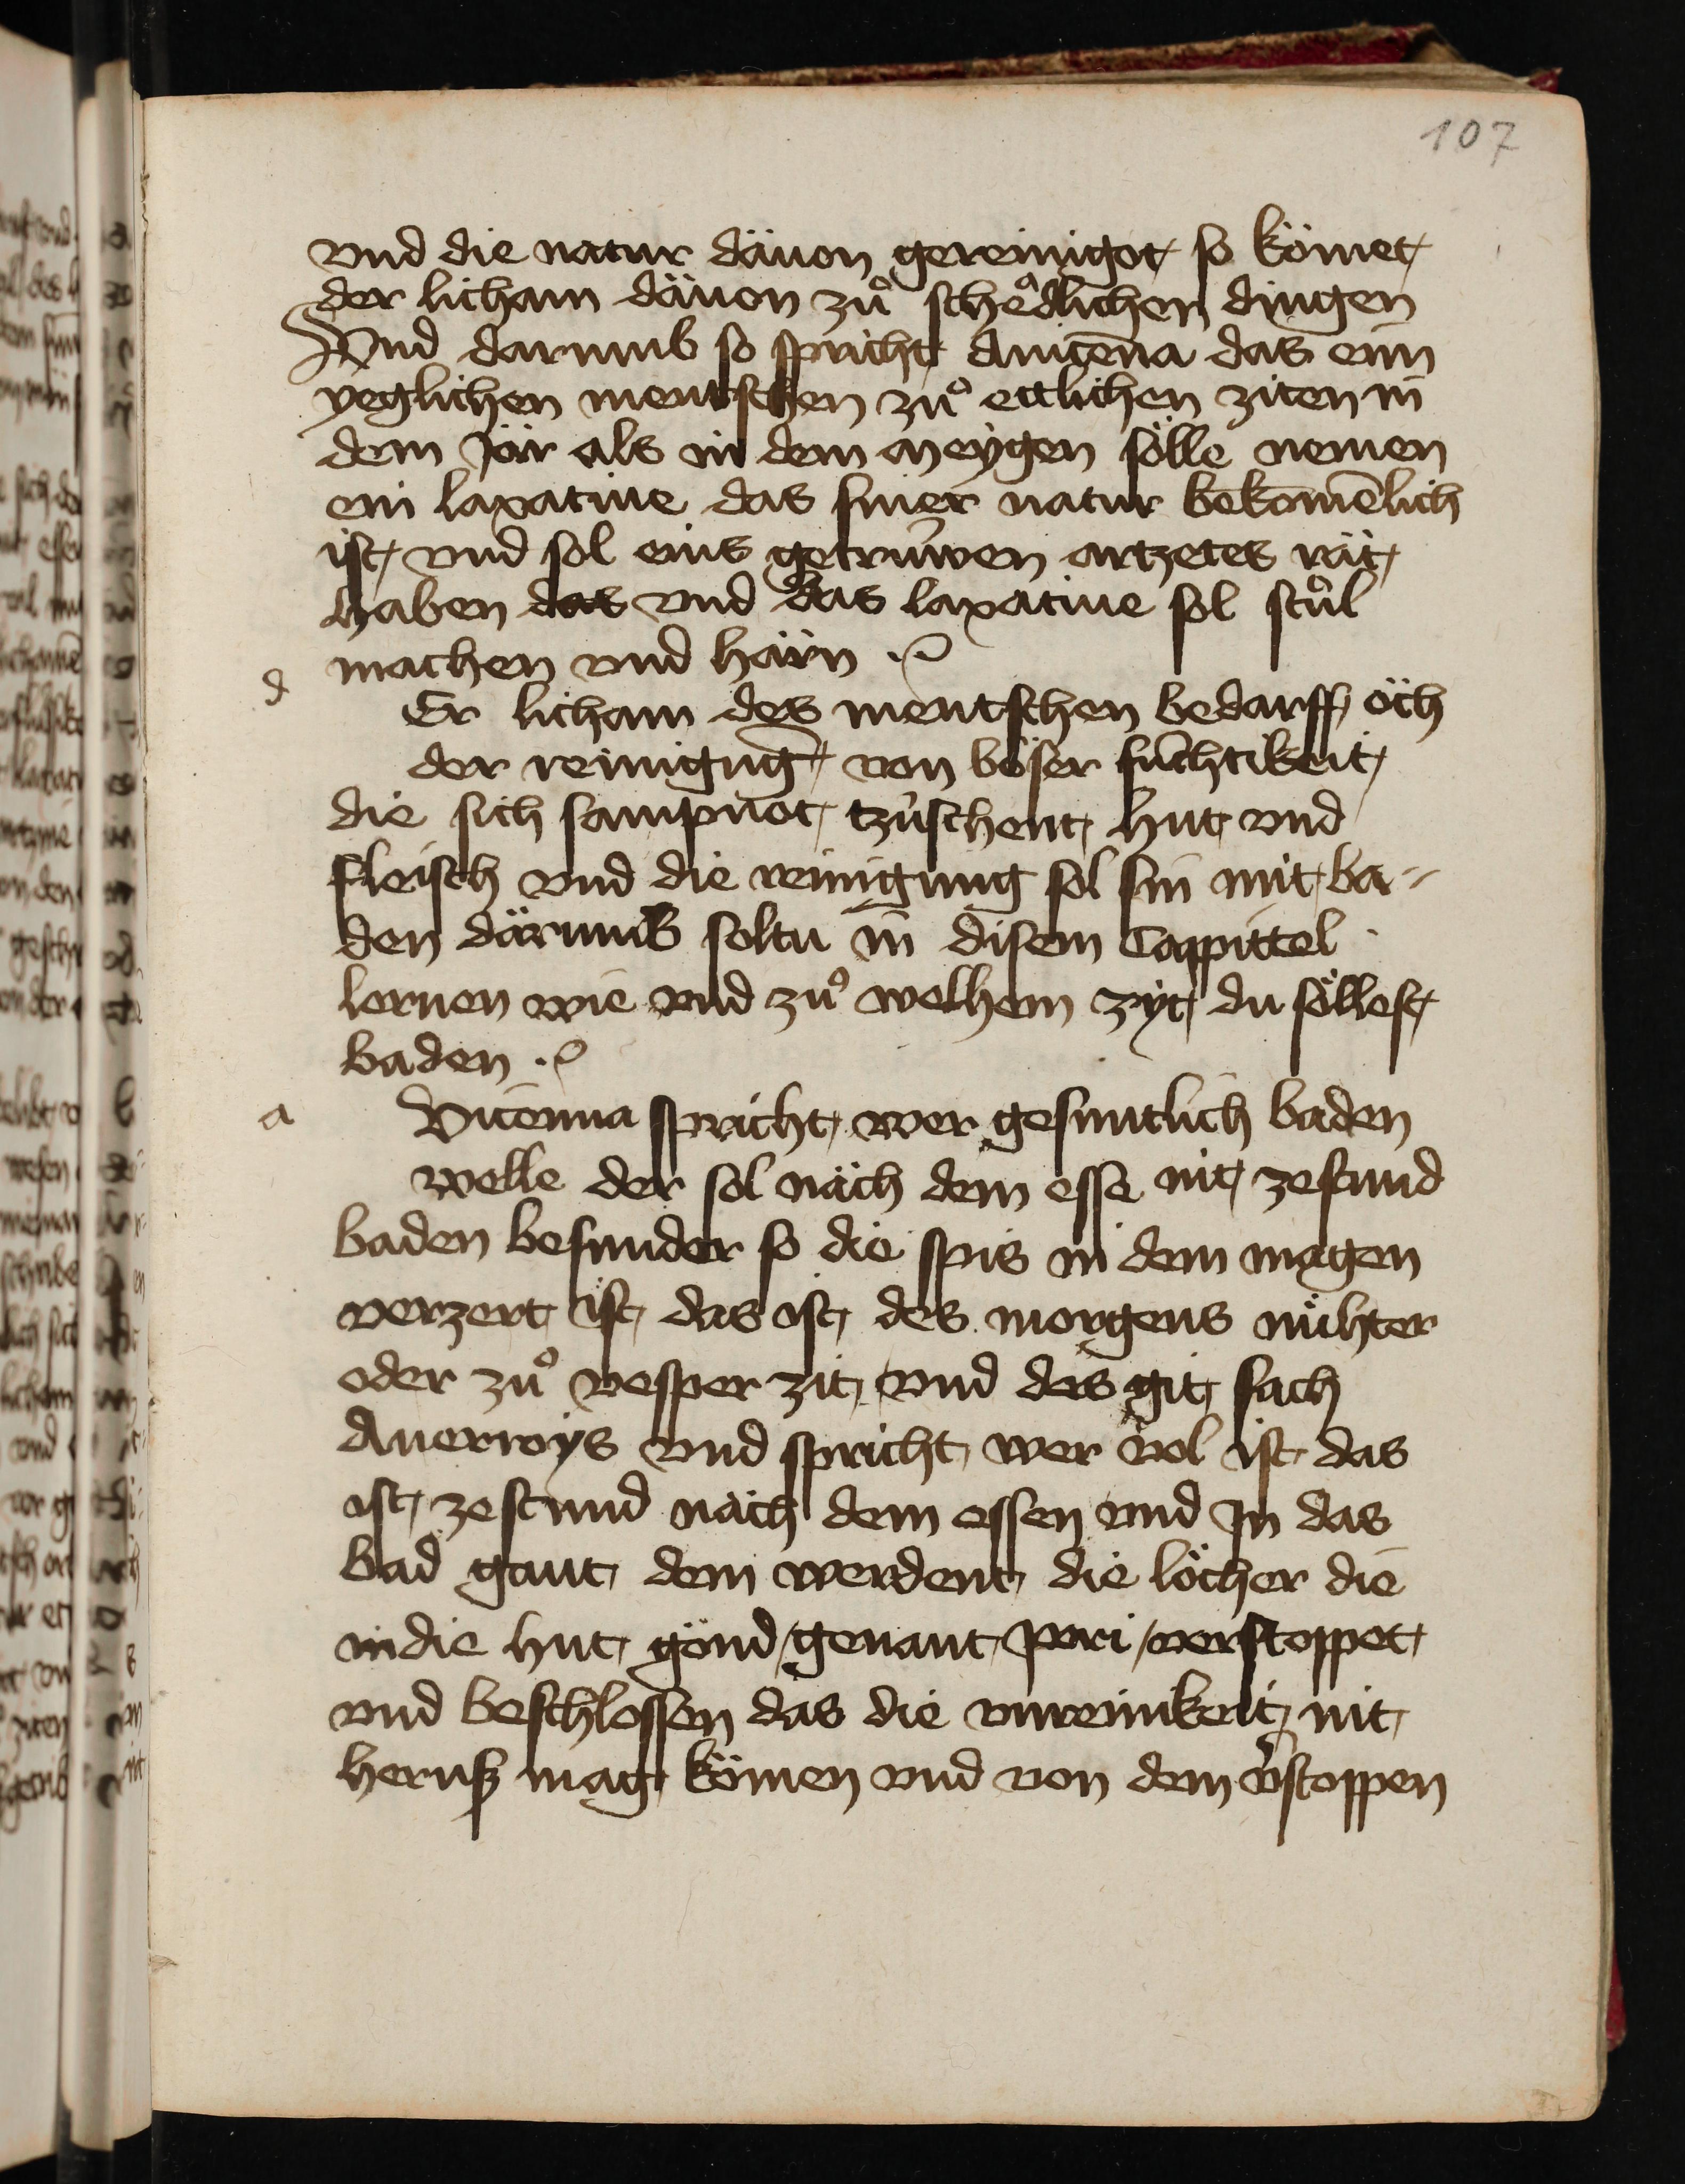 107
vnd die natur däuon gereinigot so kömet
der licham däuon zuͦ scheͣdlichen dingen
Vnd darumb so spricht Auicēna das ein
yeglichen mentschen zuͦ ettlichen ziten in
dem Jär als in dem meygen sölle nemen
ein laxatiue das siner natur bekomēlich
ist vnd sol eins getrüwen artzetes rät
haben das vnd das laxatiue sol stuͦl
machen vnd härn
d
Er licham des mentschen bedarff öch
der reinigūg von böser füchtikeit
die sich sampnot tzüschent hut vnd
fleisch vnd die reinigung sol sin mit ba-
den därumb soltu in disem Cappittel
lernen wie vnd zuͦ welhem zyt du söllest
baden
a
Vicenna spricht wer gesuntlich baden
welle der sol näch dem esse nit zestund
baden besunder so die spis in dem magen
verzert ist das ist des morgens nühter
oder zuͦ vesper zit vnd des git sach
Auerroys vnd spricht wer vol ist das
ist zestund näch dem essen vnd In das
bad gaut dem werdent die löcher die
in die hut gönd / genant pori / verstoppet
vnd beschlossen das die vnreinikeit nit
herusz mag kömen vnd von dem v̓stoppen